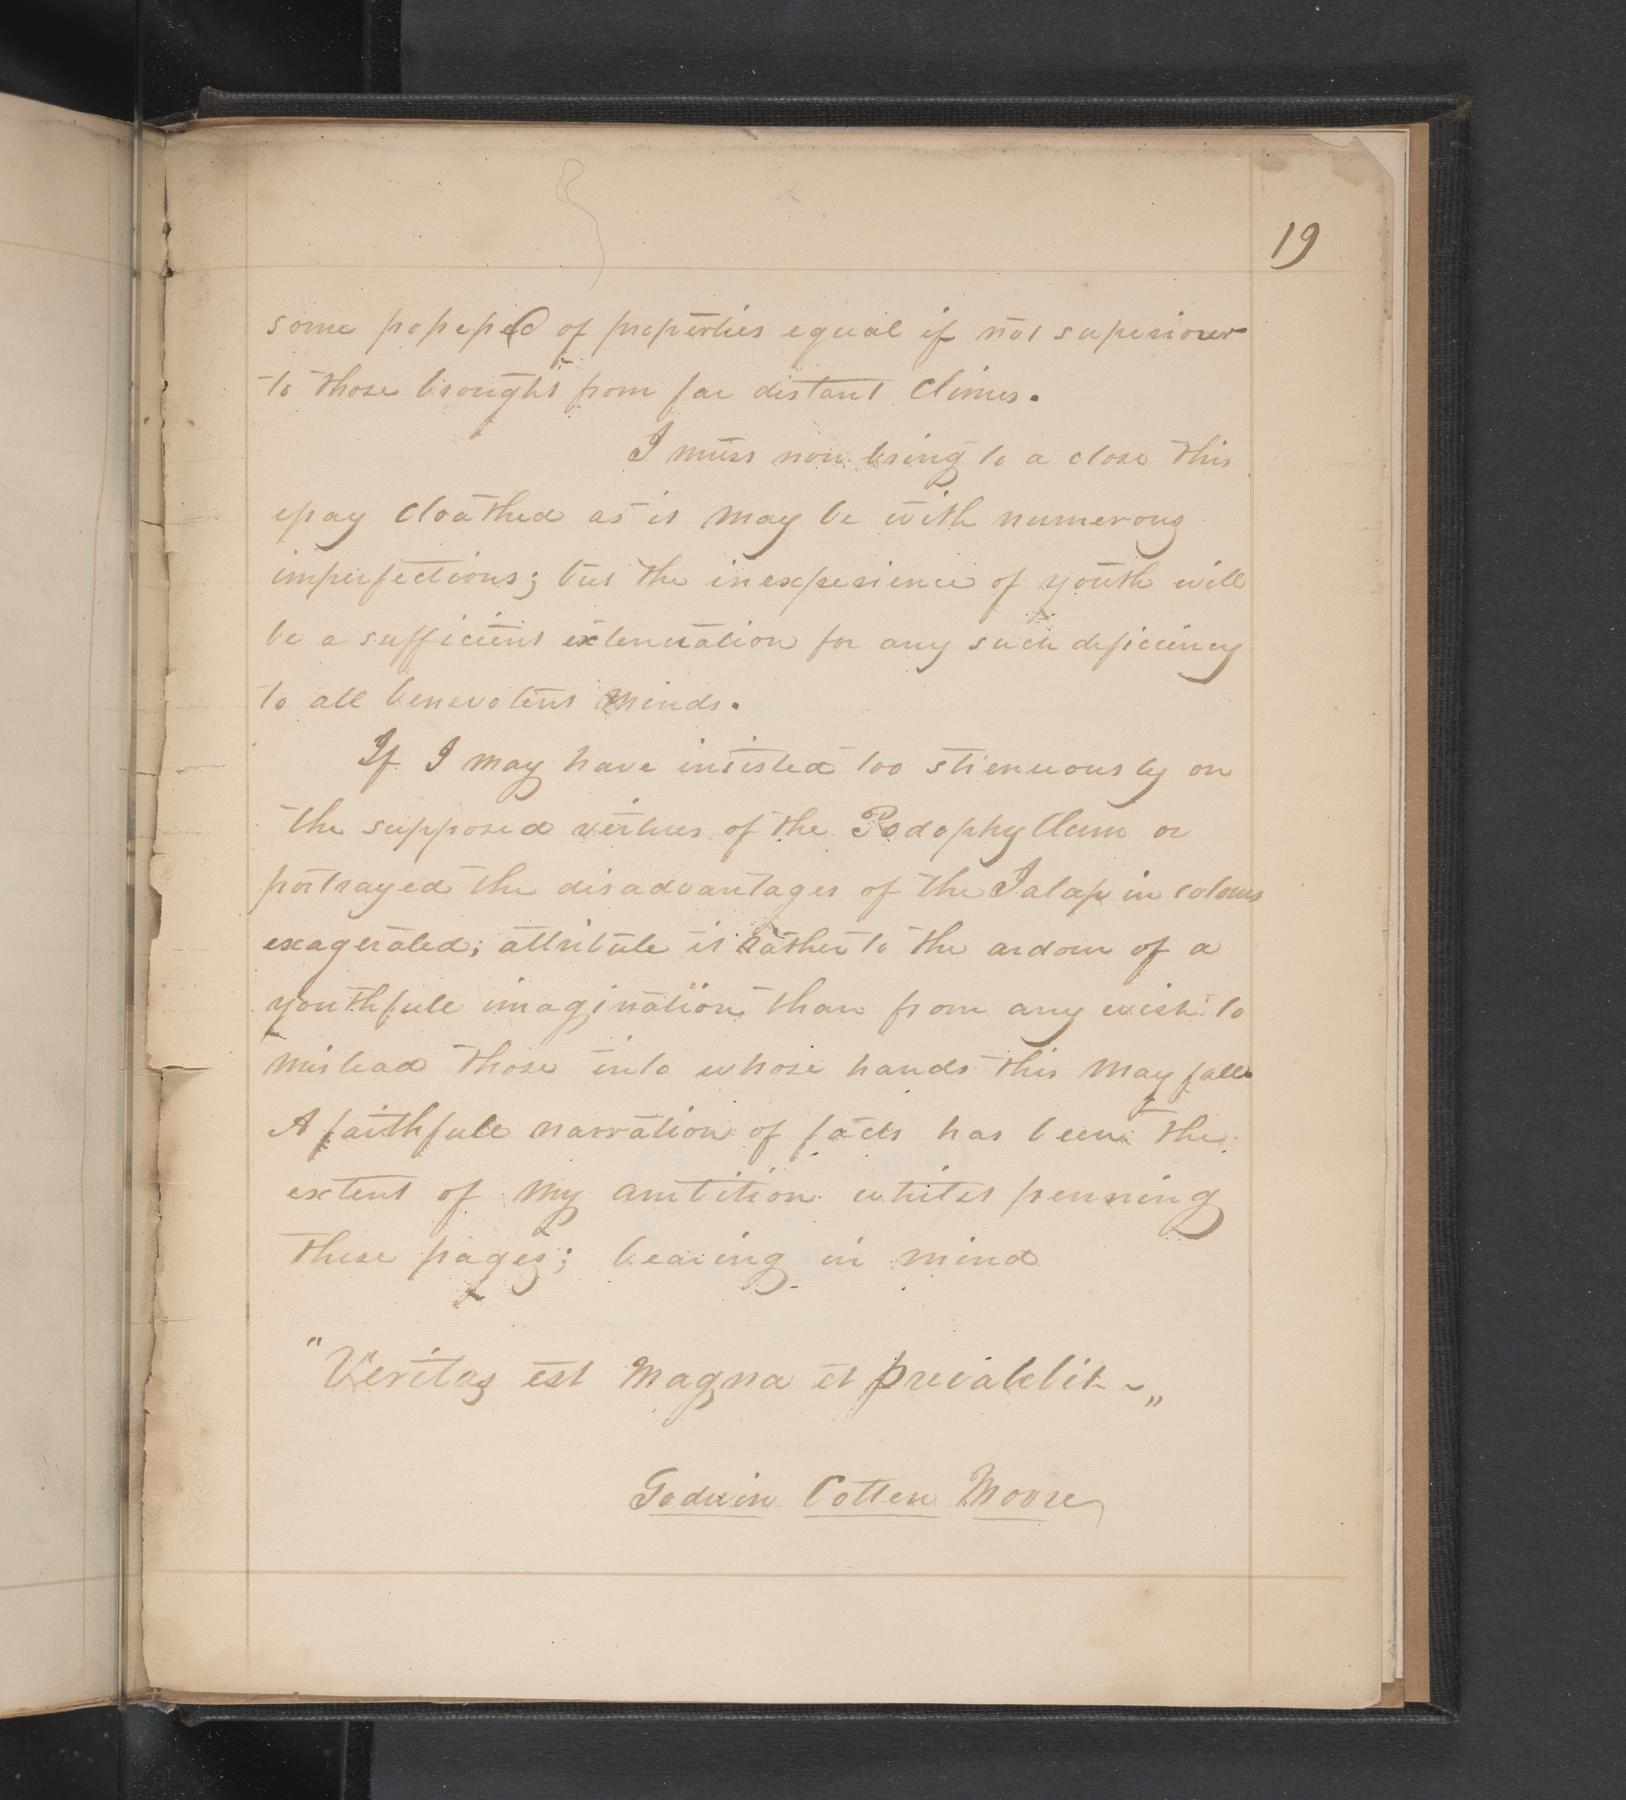 19
some possessed of properties equal if not superiour
to those brought from far distant Climes.
I must now bring to a close this
essay cloathed as it may be with numerous
imperfections; but the inexperience of youth will
be a sufficient extenuation for any such deficiency
to all benevolent minds.
If I may have insisted too strenuously on
the supposed virtues of the Podophyllum or
portrayed the disadvantages of the Jalap in colours
exagerated; attribute it rather to the ardour of a
youthfull imagination than from any wish to
mislead those into whose hands this may fall.
A faithfull narration of facts has been the
extent of my ambition whilst penning
these pages; bearing in mind
"Veritas est magna et prevalebit ~"
Godwin Cotten Moore